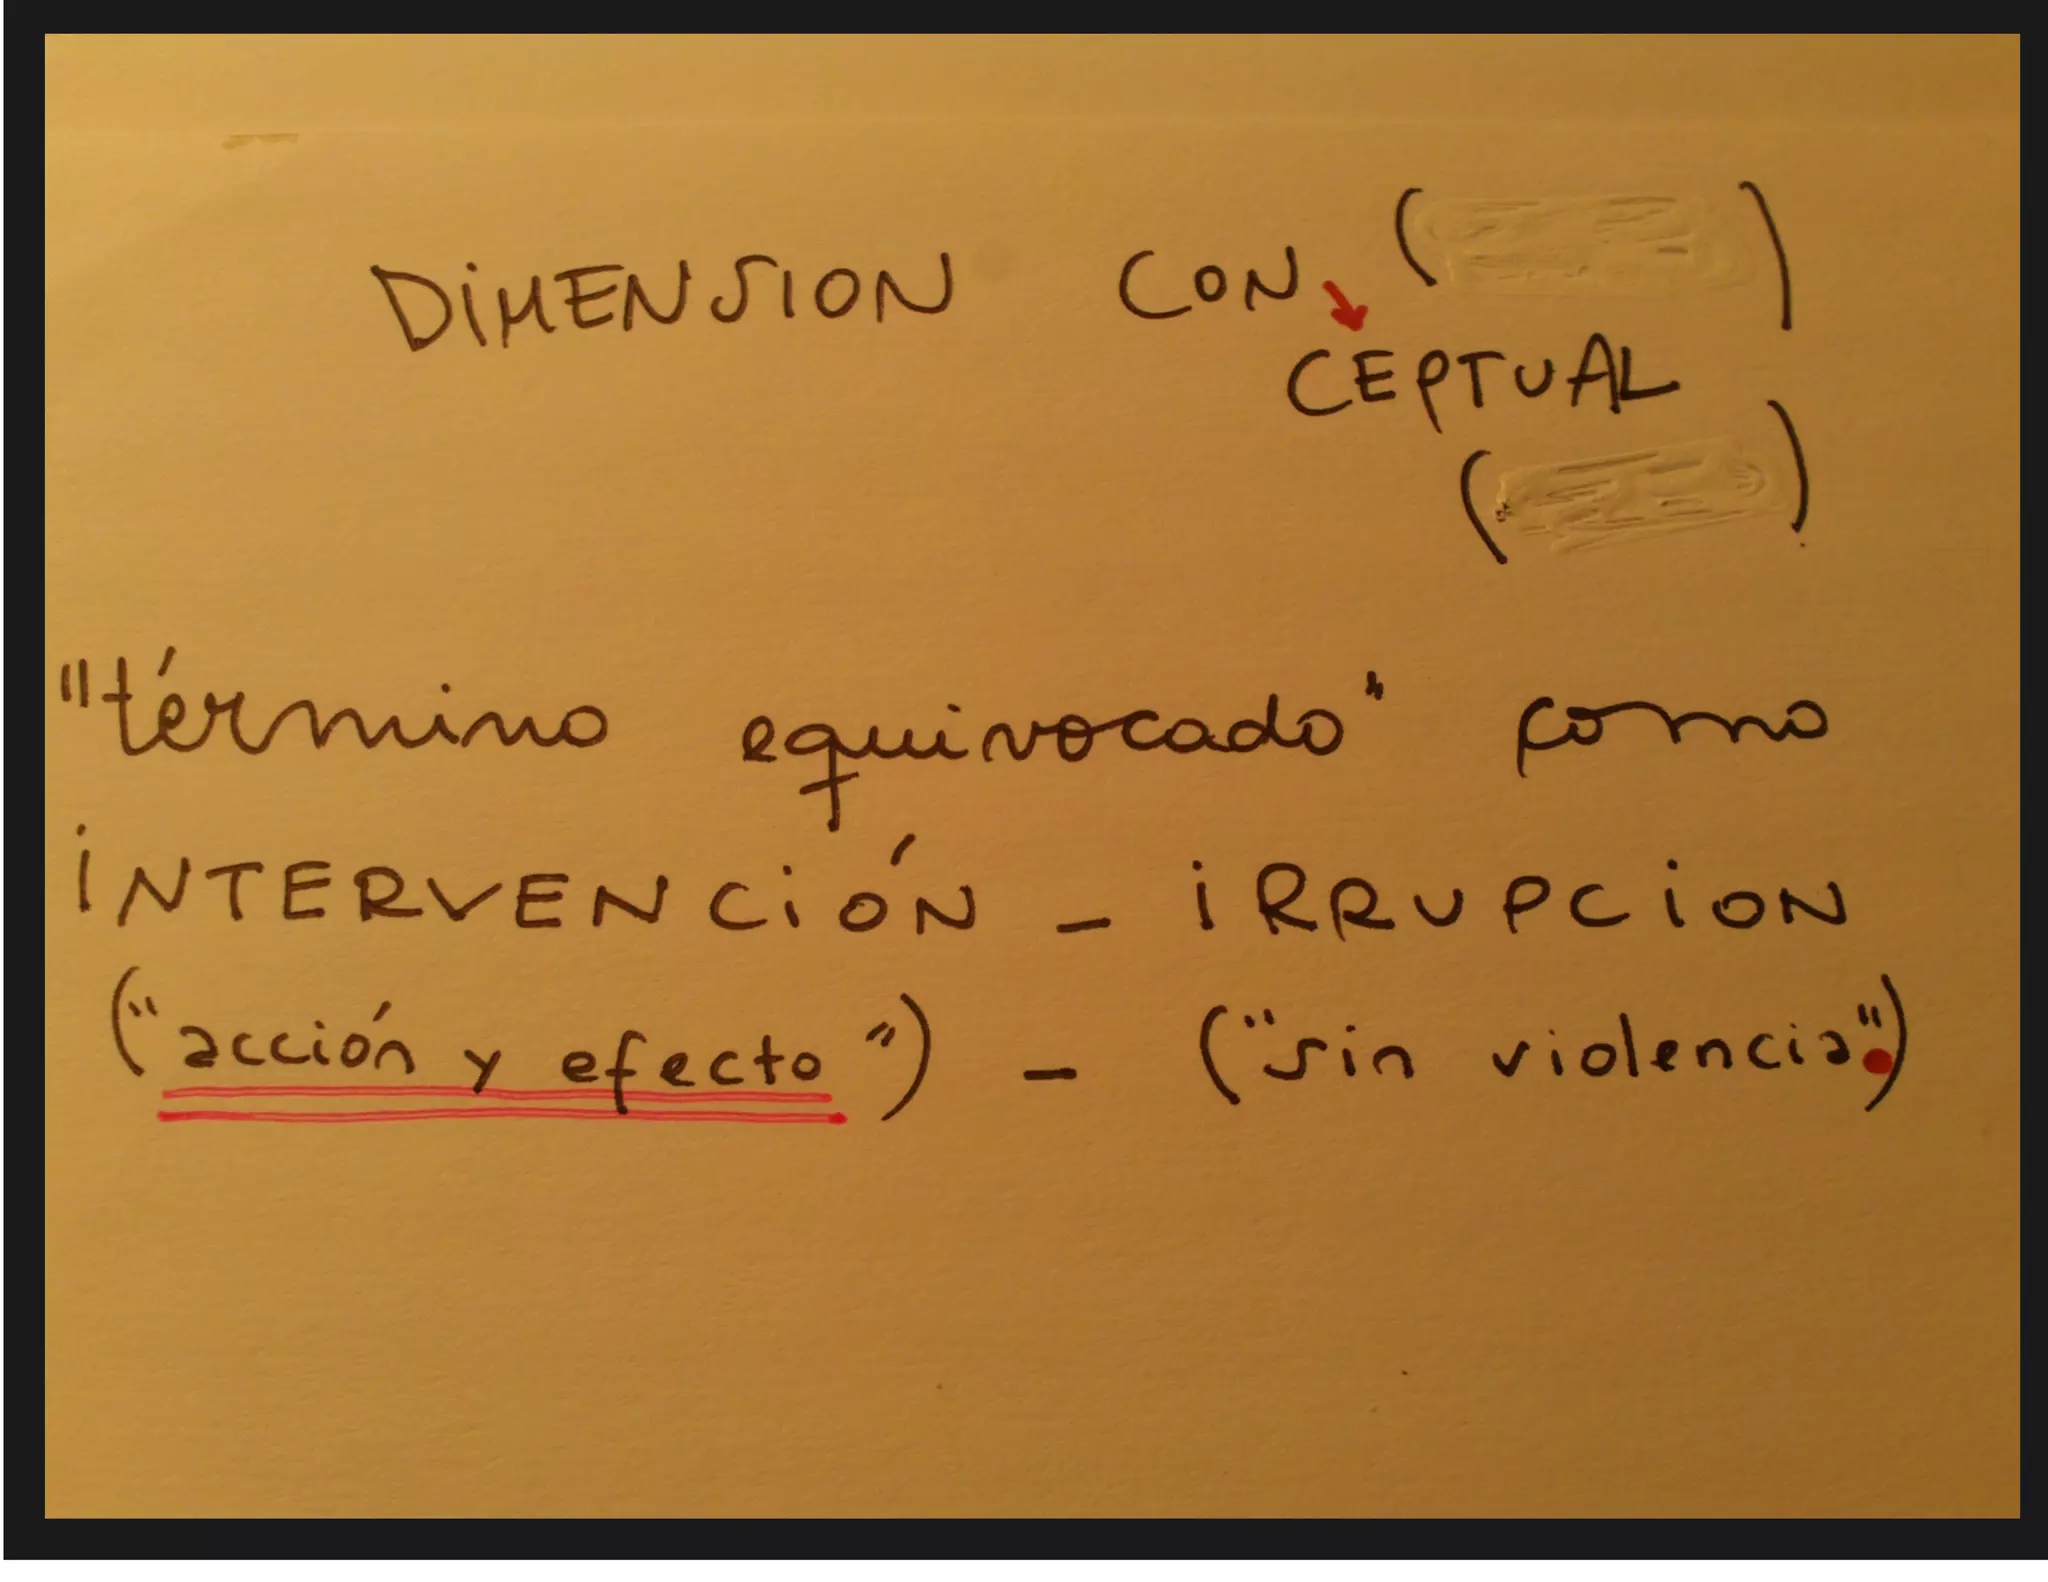 DIMENSION CON (        )
CEPTUAL
(        )
"término equivocado" como
INTERVENCIÓN - IRRUPCION
("acción y efecto") - ("sin violencia".)